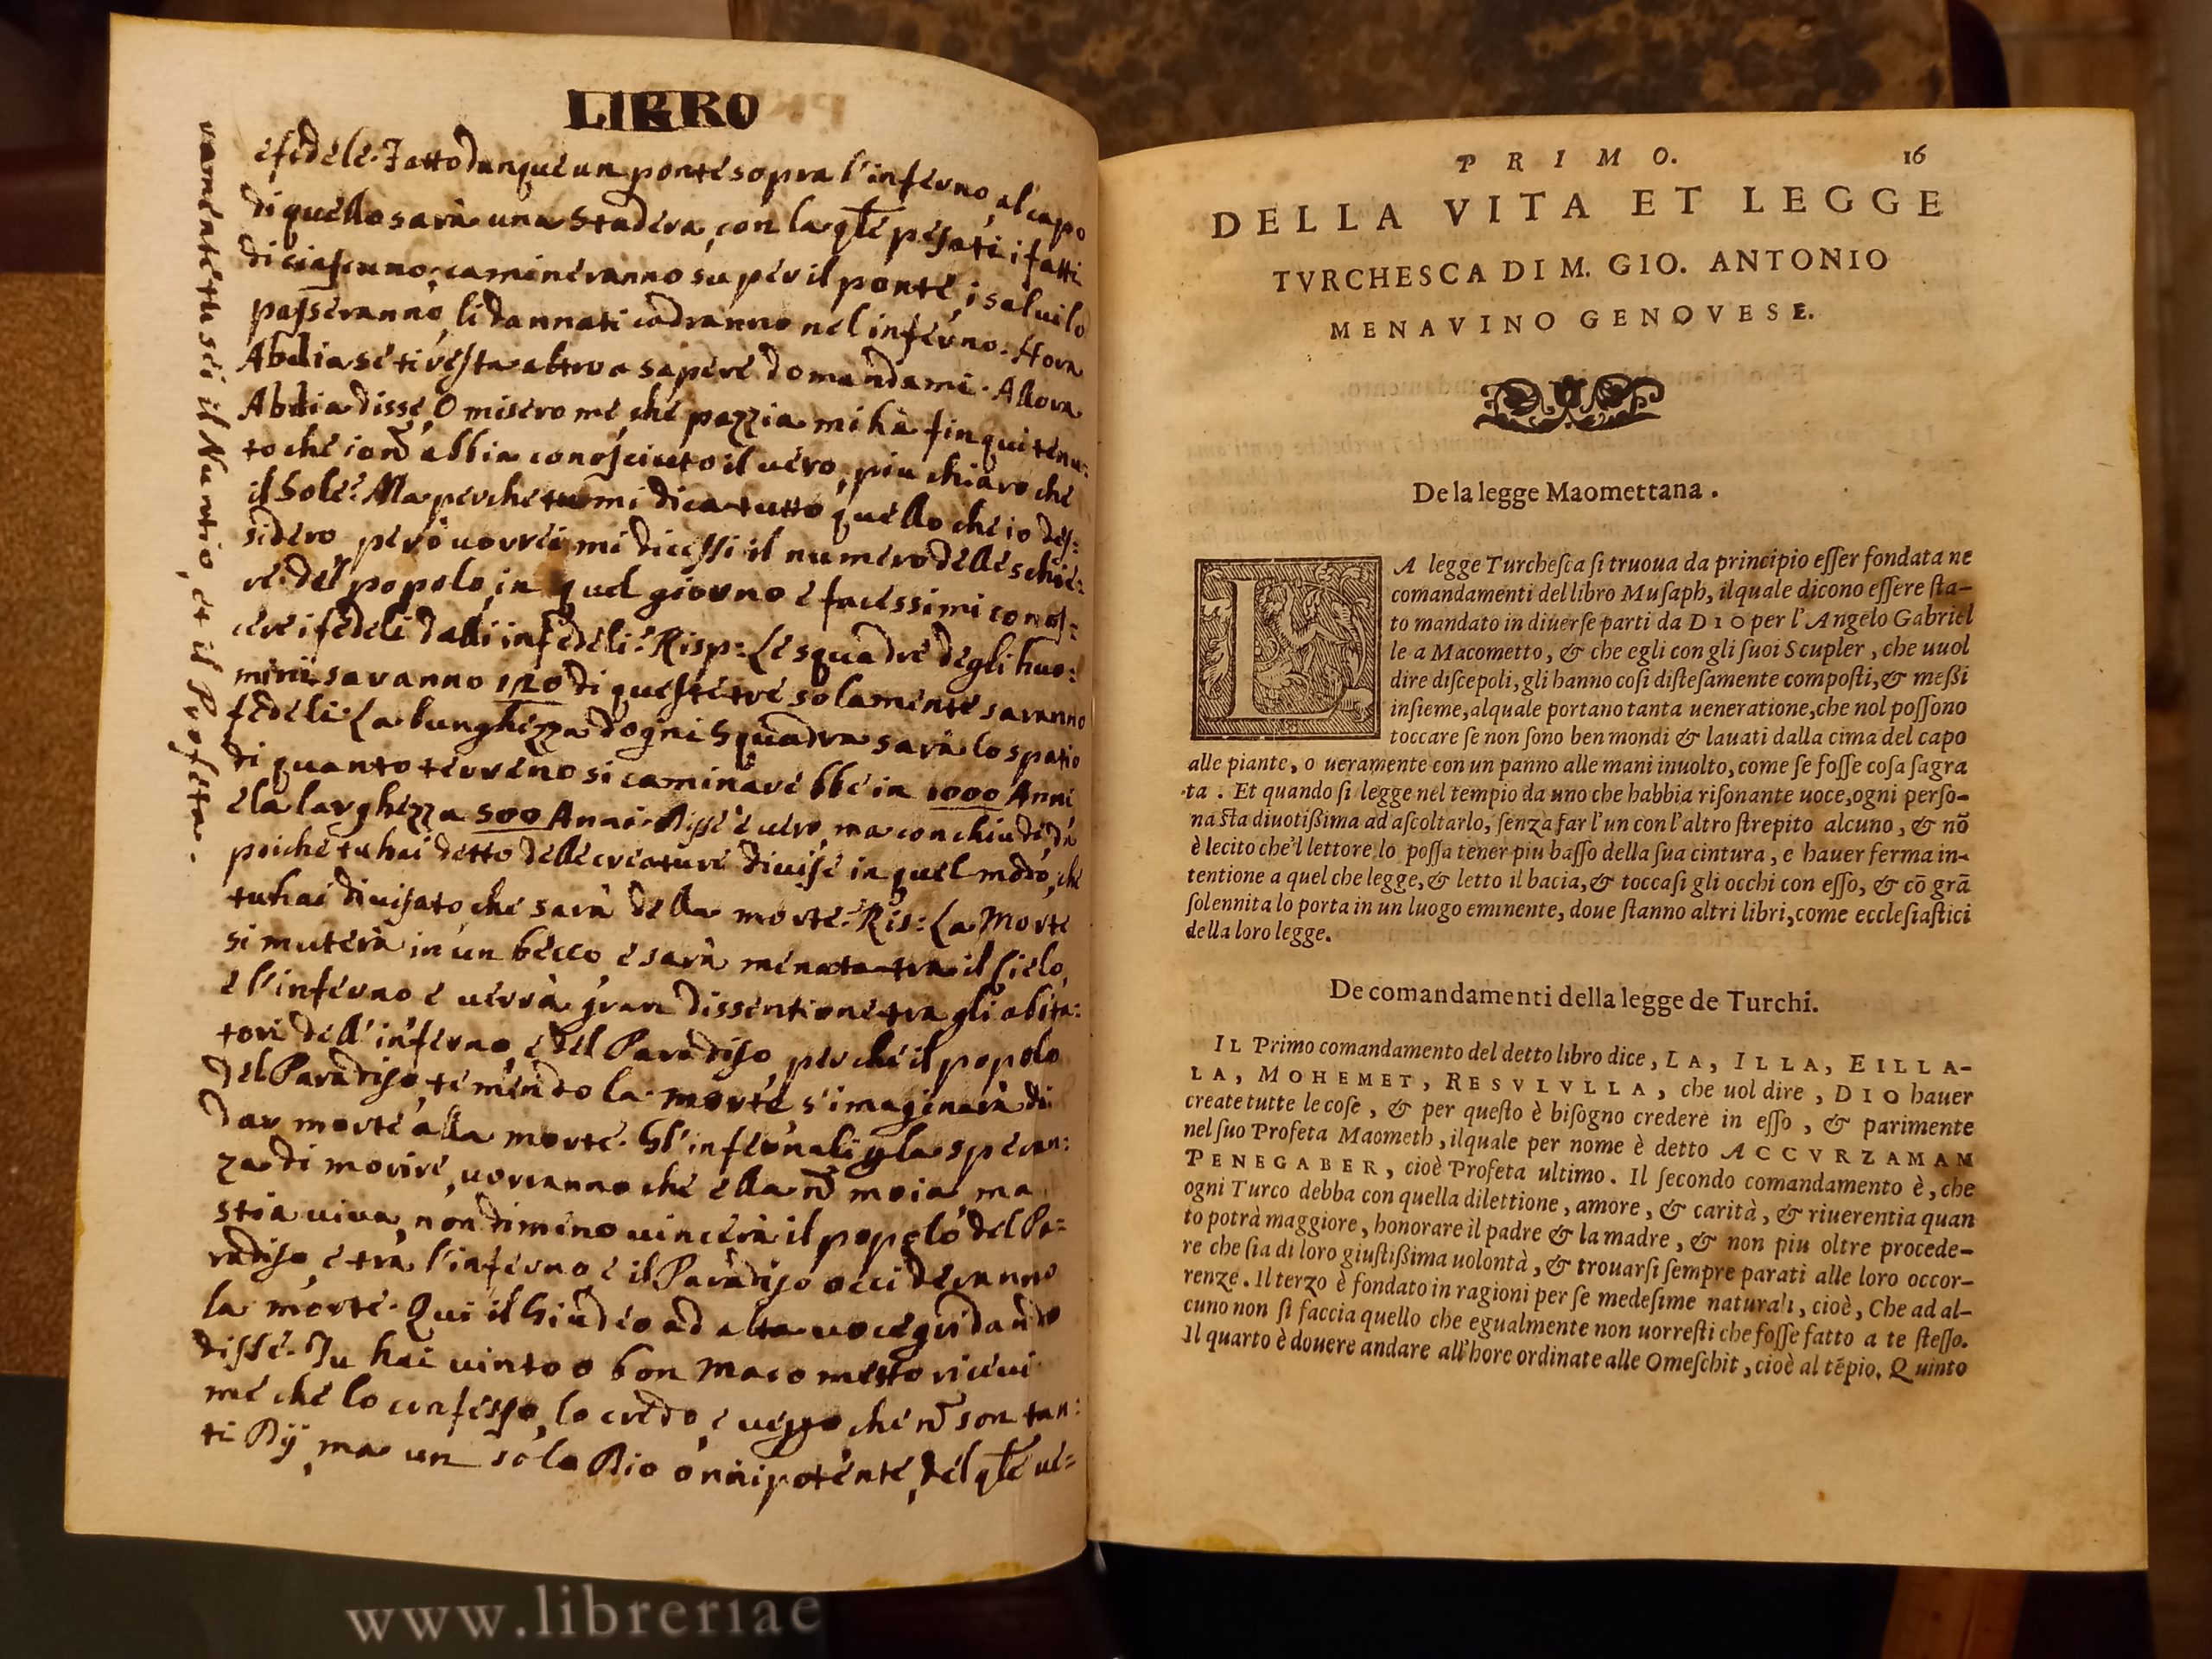 LIBRO
e fedele. Fatto dunque un ponte sopra l'inferno, al capo
di quello sarà una Stadera, con la qłe pesati i fatti
di ciascuno, camineranno su per il ponte, i salui lo
passeranno, li dannati cadranno nel inferno. Hora
Abdia se ti resta altro a sapere domandami. Allora
Abdia disse, O misero me, che pazzia mi hà fin qui tenu=
to che io nõ abbia conosciuto il uero, piu chiaro che
il Sole? Ma perche tu mi dica tutto quello che io des=
sidero però uorrei mi dicessi il numero delle schie=
re del popolo in quel giorno e facessimi conos=
cere i fedeli dalli infedeli? Risp: Le squadre degli huo=
mini saranno 120 di queste tre solamente saranno
fedeli: La lunghezza d ogni Squadra sarà lo spatio
di quanto terreno si caminarebbe in 1000 Anni
e la larghezza 500 Anni. Disse è uero, ma conchiude,
poiche tu hai detto delle creature diuise in quel modo, che
tu hai diuisato, che sarà della morte? Ris: La Morte
si muterà in un becco, e sarà menata tra il Cielo,
e l'inferno e uerrà gran dissentione tra gli abita=
tori dell' inferno, e del Paradiso, perche il popolo
del Paradiso, temendo la morte s'imaginarà di
dar morte alla morte. Gl'infernali p la speran:
za di morire, uorranno che ella nõ moia, ma
stia viva, nondimeno uincerà il popolo del Pa=
radiso, e trà l'inferno, e il Paradiso occideranno
la morte. Qui il Giudeo ad alta uoce gridando
disse. Tu hai uinto o bon Macometto riceui
me che lo confesso, lo credo, e ueggo che nõ son tan:
ti Dij, ma un solo Dio onnipotente, del qłe ue=
ramente tu sei il Nuntio, et il Profeta.
PRIMO. 16
DELLA VITA ET LEGGE
TVRCHESCA DI M. GIO. ANTONIO
MENAVINO GENOVESE.
De la legge Maomettana.
LA legge Turchesca si truoua da principio esser fondata ne
comandamenti del libro Musaph, ilquale dicono essere sta-
to mandato in diuerse parti da DIO per l'Angelo Gabriel
le a Macometto, & che egli con gli suoi Scupler, che uuol
dire discepoli, gli hanno cosi distesamente composti, & meßi
insieme, alquale portano tanta ueneratione, che nol possono
toccare se non sono ben mondi & lauati dalla cima del capo
alle piante, o ueramente con un panno alle mani inuolto, come se fosse cosa sagra
ta. Et quando si legge nel tempio da uno che habbia risonante uoce, ogni perso-
na sta diuotißima ad ascoltarlo, senza far l'un con l'altro strepito alcuno, & nõ
è lecito che'l lettore lo possa tener piu basso della sua cintura, e hauer ferma in-
tentione a quel che legge, & letto il bacia, & toccasi gli occhi con esso, & cõ grã
solennita lo porta in un luogo eminente, doue stanno altri libri, come ecclesiastici
della loro legge.
De comandamenti della legge de Turchi.
IL Primo comandamento del detto libro dice, LA, ILLA, EILLA-
LA, MOHEMET, RESVLVLLA, che uol dire, DIO hauer
create tutte le cose, & per questo è bisogno credere in esso, & parimente
nel suo Profeta Maometh, ilquale per nome è detto ACCVRZAMAM
PENEGABER, cioè Profeta ultimo. Il secondo comandamento è, che
ogni Turco debba con quella dilettione, amore, & carità, & riuerentia quan
to potrà maggiore, honorare il padre & la madre, & non piu oltre procede-
re che sia di loro giustißima uolontà, & trouarsi sempre parati alle loro occor-
renze. Il terzo è fondato in ragioni per se medesime naturali, cioè, Che ad al-
cuno non si faccia quello che egualmente non uorresti che fosse fatto a te stesso.
Il quarto è douere andare all'hore ordinate alle Omeschit, cioè al tẽpio. Quinto
www.libreriae